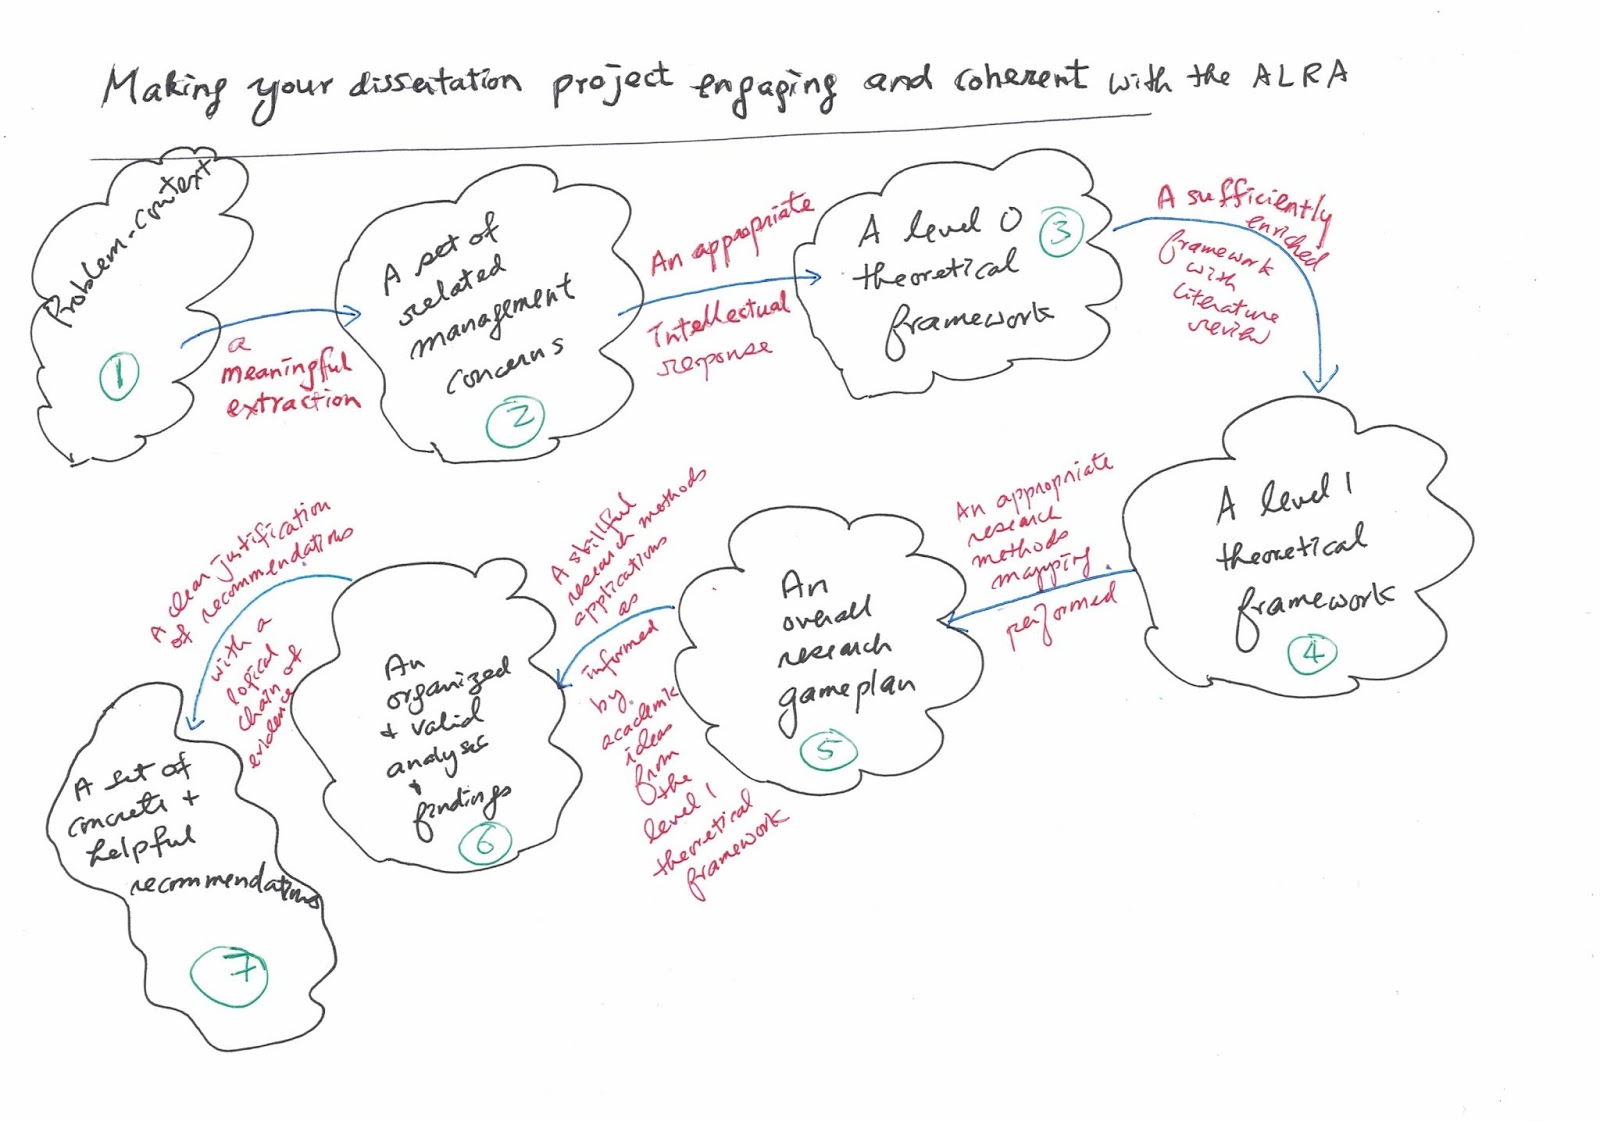 Making your dissertation project engaging and coherent with the ALRA
Problem-context
1
a
meaningful
extraction
A set of
related
management
concerns
2
An appropriate
Intellectual
response
A level 0
theoretical
framework
3
A sufficiently
enriched
framework
with
literature
review
A level 1
theoretical
framework
4
An appropriate
research
methods
mapping
performed
An
overall
research
gameplan
5
A skillful
research methods
applications
as
informed
by
academic
ideas
from
the
level 1
theoretical
framework
An
organized
+ valid
analyses
+
findings
6
A clear justification
of recommendations
with a
logical
chain of
evidence
A set of
concrete +
helpful
recommendations
7